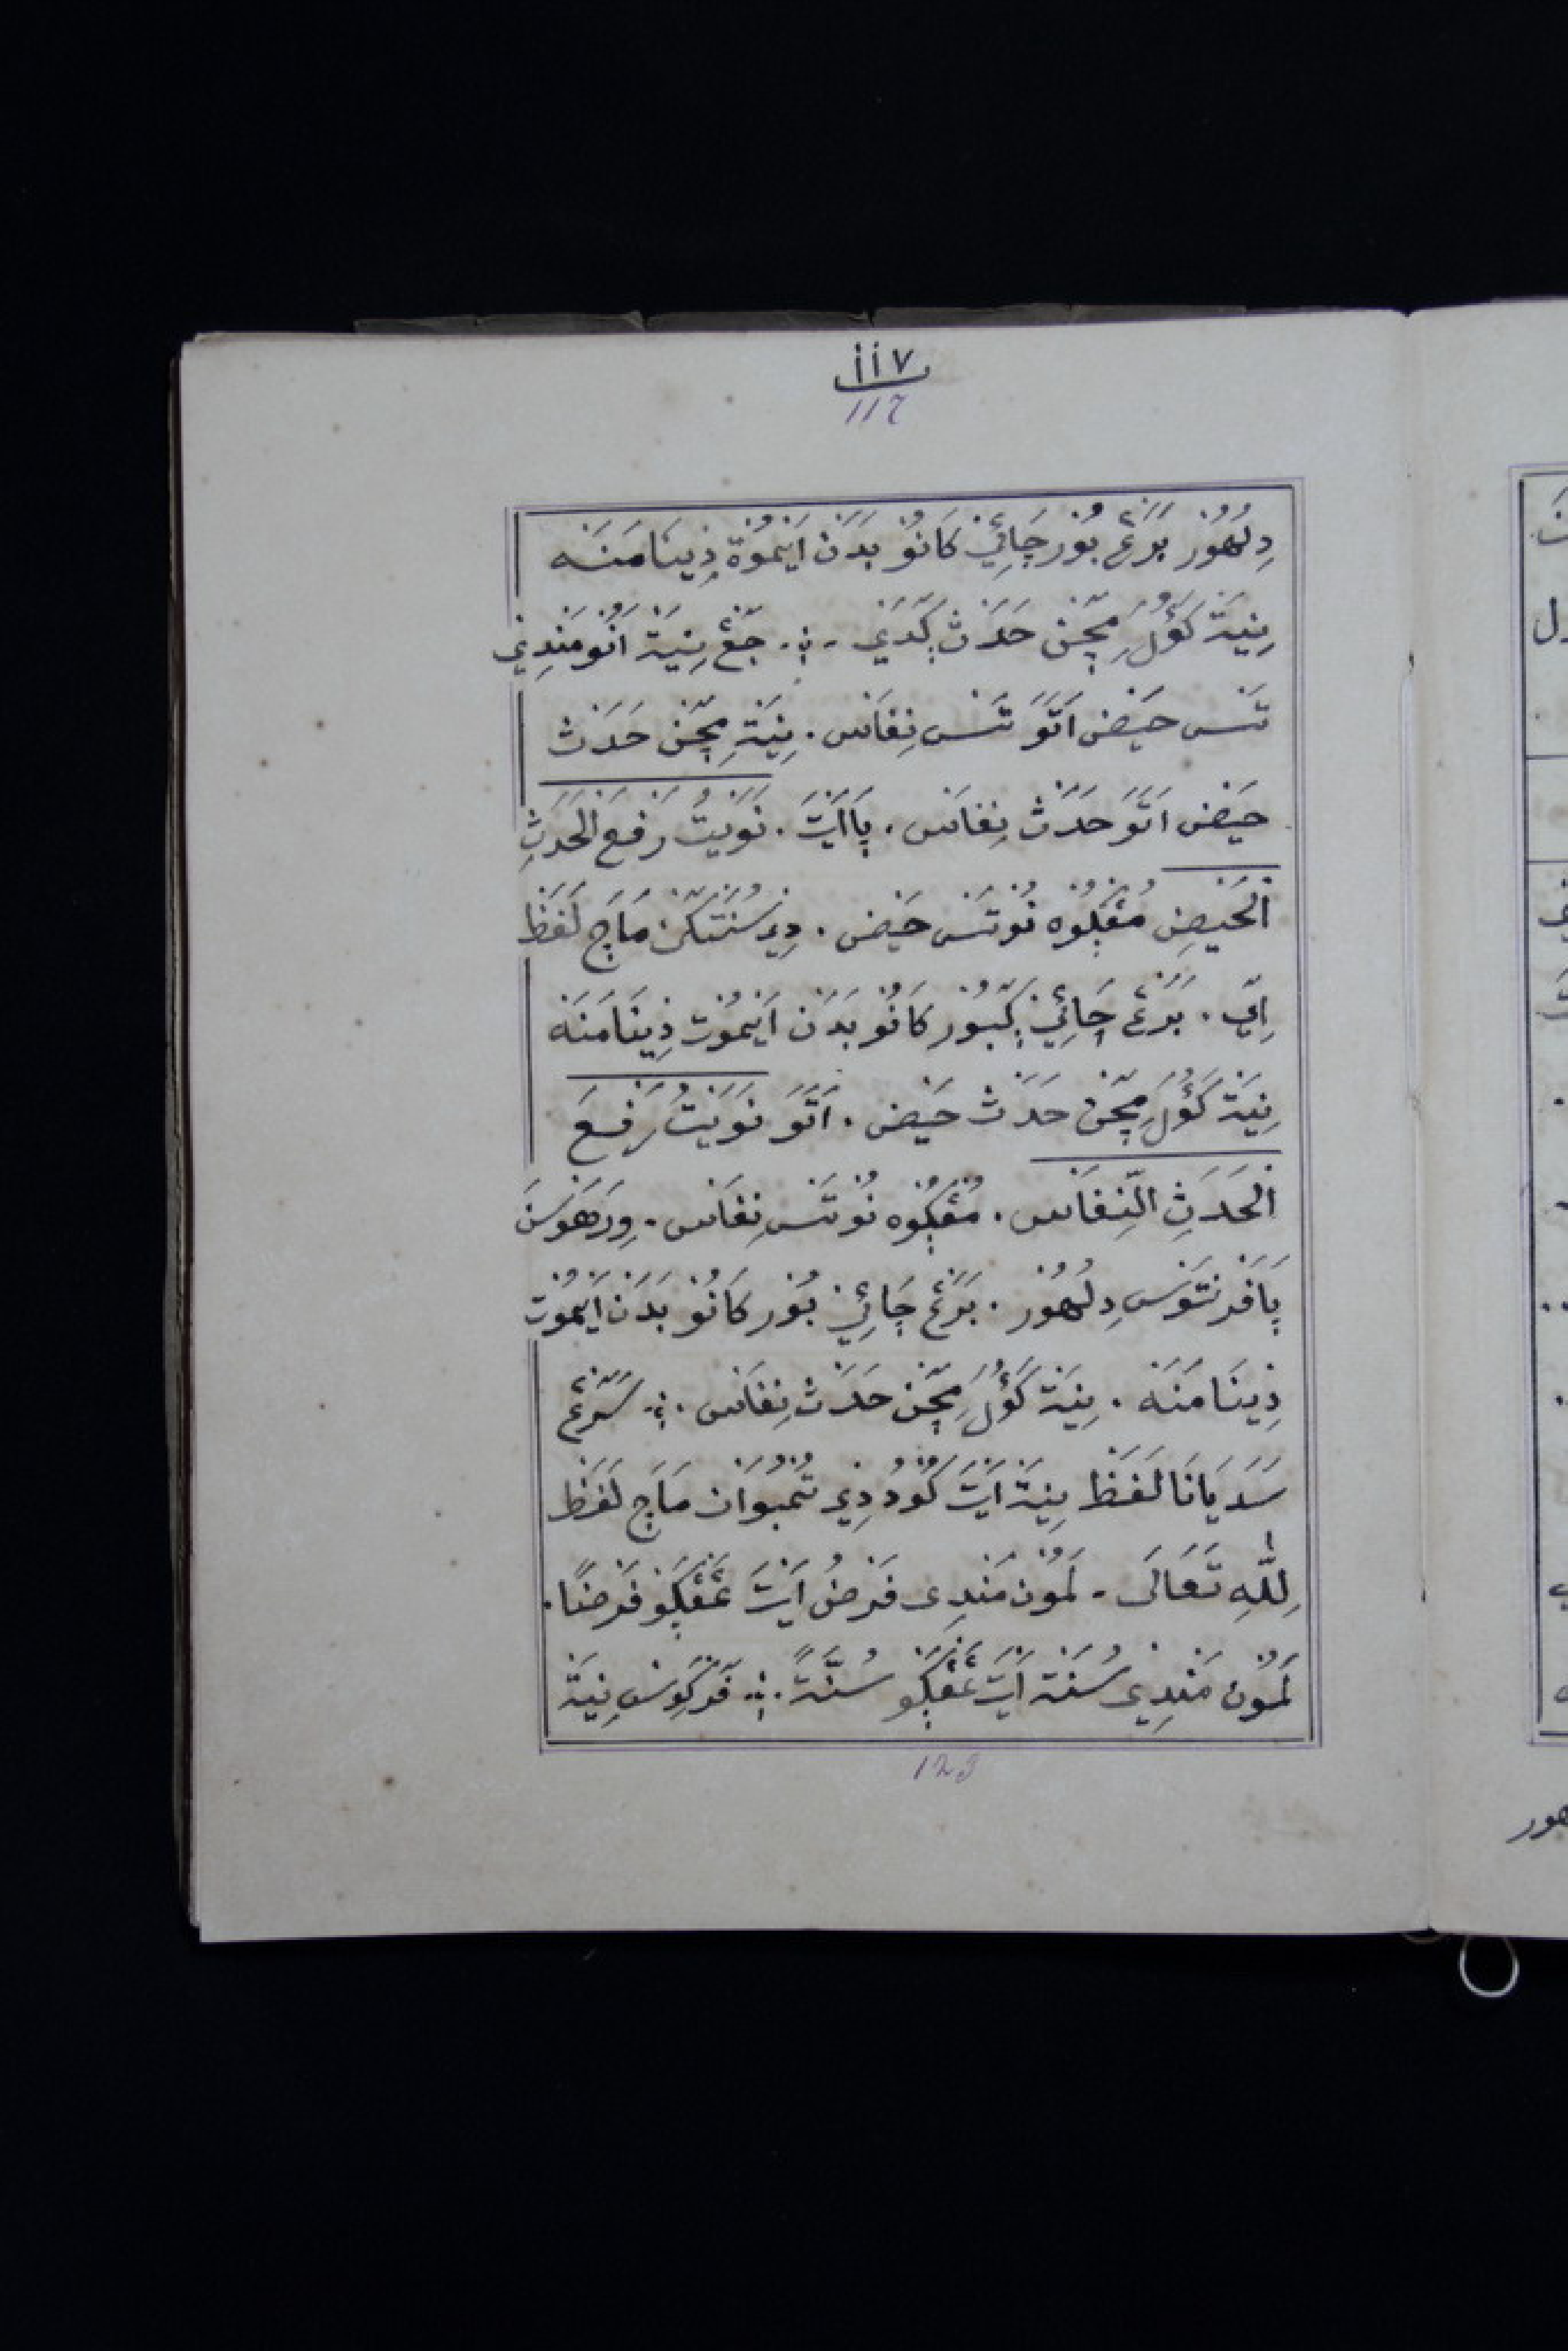 ١١٧
117
دِلُهُوْر بَرَڠْ بُوْر چَائِيْ كَانُوْ بَدَنْ اَيْمُوْة ذِيْنَا مَنَه
نِيَة كَؤُلَ مِچّنْ حَدَثْ ݢَدَيْ ؞ جَڠْ نِيَة اَنُوْ مَنْدِيْ
تَنَسْ حَيْضْ اَتَوَ تَنَسْ نِفَاسْ . نِيَةِ مِچّنْ حَدَثْ
حَيْضْ اَتَوَ حَدَثْ نِفَاسْ . ڽَاأَيْتَ . نَوَيْتُ رَفْعَ الْحَدَثِ
الْحَيْضِ مُڠْݢُوْه نُوْ تَنَسْ حَيْضْ . دِيْ سُنَّتكَنْ مَاچَ لَفَظْ
اِيْ . بَرَڠْ چَائِيْ ݢّبُوْر كَانُوْ بَدَنْ اَيْمُوْت ذِيْنَا مَنَه
نِيَة كَؤُلَ مِچّنْ حَدَثْ حَيْضْ . اَتَوَ نَوَيْتُ رَفْعَ
الْحَدَثِ النِّفَاسْ . مُڠْݢُوْه نُوْ تَنَسْ نِفَاسْ . وِرَهَوْسَنَ
ڽَافَرَنْتَوَسْ دِلُهُوْر . بَرَڠْ چَائِيْ بُوْر كَانُوْ بَدَنْ اَيْمُوْت
ذِيْنَا مَنَه . نِيَة كَؤُلَ مِچّنْ حَدَثْ نِفَاسْ ؞ سَرّڠْ
سَدَيَانَا لَفَظْ نِيَة اَيْتَ كَوْدُ دِيْ تُمْبُوْانْ مَاچَ لَفَظْ
لِلّٰهِ تَعَالَى - لَمُوْن مَنْدِى فَرْضُ اَيْتَ عَڠْݢَوْ فَرْضًا .
لَمُوْن مَنْدِيْ سُنَة اَيْتَ عَڠْݢَوْ سُنَّةً ؞ فَرْكَوِسْ نِيَة
123